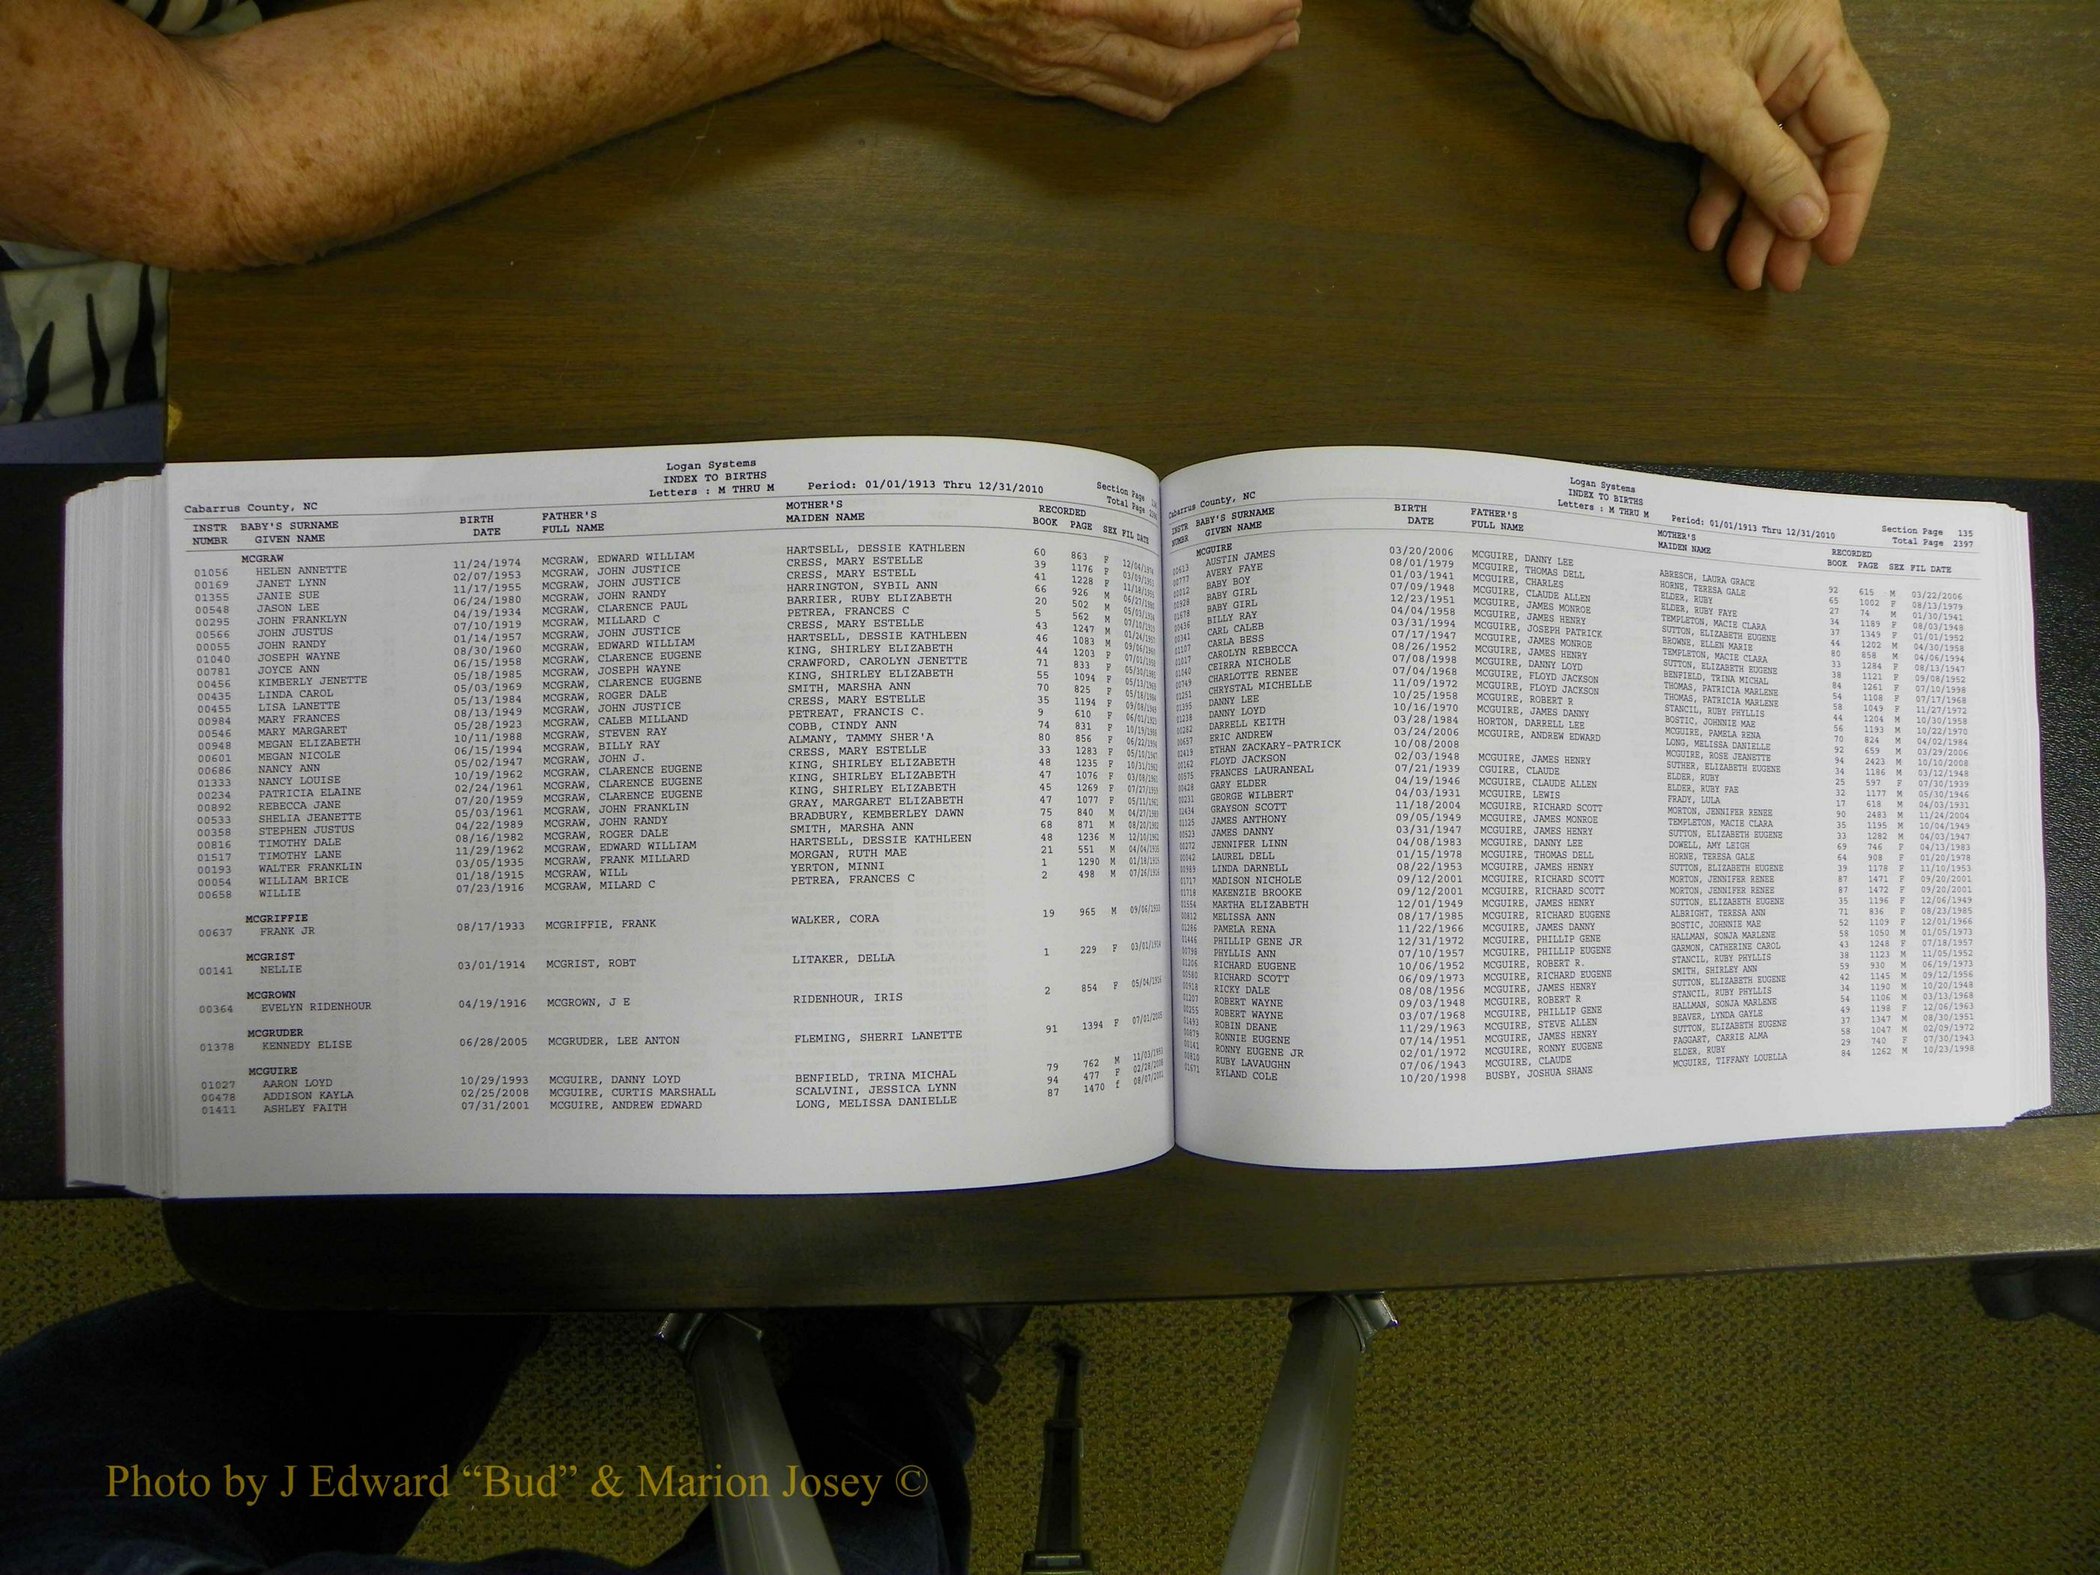 Logan Systems
INDEX TO BIRTHS
Cabarrus County, NC Letters : M THRU M Period: 01/01/1913 Thru 12/31/2010 Section Page
Total Page
INSTR BABY'S SURNAME BIRTH FATHER'S MOTHER'S RECORDED
NUMBR GIVEN NAME DATE FULL NAME MAIDEN NAME BOOK PAGE SEX FIL DATE
MCGRAW
01056 HELEN ANNETTE 11/24/1974 MCGRAW, EDWARD WILLIAM HARTSELL, DESSIE KATHLEEN 60 863 F 12/04/1974
00169 JANET LYNN 02/07/1953 MCGRAW, JOHN JUSTICE CRESS, MARY ESTELLE 39 1176 F 03/09/1953
01355 JANIE SUE 11/17/1955 MCGRAW, JOHN JUSTICE CRESS, MARY ESTELL 41 1228 F 11/18/1955
00548 JASON LEE 06/24/1980 MCGRAW, JOHN RANDY HARRINGTON, SYBIL ANN 66 926 M 06/27/1980
00295 JOHN FRANKLYN 04/19/1934 MCGRAW, CLARENCE PAUL BARRIER, RUBY ELIZABETH 20 502 M 05/03/1934
00566 JOHN JUSTUS 07/10/1919 MCGRAW, MILLARD C PETREA, FRANCES C 5 562 M 07/10/1919
00055 JOHN RANDY 01/14/1957 MCGRAW, JOHN JUSTICE CRESS, MARY ESTELLE 43 1247 M 01/24/1957
01040 JOSEPH WAYNE 08/30/1960 MCGRAW, EDWARD WILLIAM HARTSELL, DESSIE KATHLEEN 46 1083 M 09/06/1960
00781 JOYCE ANN 06/15/1958 MCGRAW, CLARENCE EUGENE KING, SHIRLEY ELIZABETH 44 1203 F 07/01/1958
00456 KIMBERLY JENETTE 05/18/1985 MCGRAW, JOSEPH WAYNE CRAWFORD, CAROLYN JENETTE 71 833 F 05/30/1985
00435 LINDA CAROL 05/03/1969 MCGRAW, CLARENCE EUGENE KING, SHIRLEY ELIZABETH 55 1094 F 05/13/1969
00455 LISA LANETTE 05/13/1984 MCGRAW, ROGER DALE SMITH, MARSHA ANN 70 825 F 05/18/1984
00984 MARY FRANCES 08/13/1949 MCGRAW, JOHN JUSTICE CRESS, MARY ESTELLE 35 1194 F 09/08/1949
00546 MARY MARGARET 05/28/1923 MCGRAW, CALEB MILLAND PETREAT, FRANCIS C. 9 610 F 06/01/1923
00948 MEGAN ELIZABETH 10/11/1988 MCGRAW, STEVEN RAY COBB, CINDY ANN 74 831 F 10/19/1988
00601 MEGAN NICOLE 06/15/1994 MCGRAW, BILLY RAY ALMANY, TAMMY SHER'A 80 856 F 06/22/1994
00686 NANCY ANN 05/02/1947 MCGRAW, JOHN J. CRESS, MARY ESTELLE 33 1283 F 05/10/1947
01333 NANCY LOUISE 10/19/1962 MCGRAW, CLARENCE EUGENE KING, SHIRLEY ELIZABETH 48 1235 F 10/31/1962
00234 PATRICIA ELAINE 02/24/1961 MCGRAW, CLARENCE EUGENE KING, SHIRLEY ELIZABETH 47 1076 F 03/08/1961
00892 REBECCA JANE 07/20/1959 MCGRAW, CLARENCE EUGENE KING, SHIRLEY ELIZABETH 45 1269 F 07/27/1959
00533 SHELIA JEANETTE 05/03/1961 MCGRAW, JOHN FRANKLIN GRAY, MARGARET ELIZABETH 47 1077 F 05/11/1961
00358 STEPHEN JUSTUS 04/22/1989 MCGRAW, JOHN RANDY BRADBURY, KEMBERLEY DAWN 75 840 M 04/27/1989
00816 TIMOTHY DALE 08/16/1982 MCGRAW, ROGER DALE SMITH, MARSHA ANN 68 871 M 08/20/1982
01517 TIMOTHY LANE 11/29/1962 MCGRAW, EDWARD WILLIAM HARTSELL, DESSIE KATHLEEN 48 1236 M 12/10/1962
00193 WALTER FRANKLIN 03/05/1935 MCGRAW, FRANK MILLARD MORGAN, RUTH MAE 21 551 M 04/04/1935
00054 WILLIAM BRICE 01/18/1915 MCGRAW, WILL YERTON, MINNI 1 1290 M 01/18/1915
00658 WILLIE 07/23/1916 MCGRAW, MILARD C PETREA, FRANCES C 2 498 M 07/26/1916
MCGRIFFIE
00637 FRANK JR 08/17/1933 MCGRIFFIE, FRANK WALKER, CORA 19 965 M 09/06/1933
MCGRIST
00141 NELLIE 03/01/1914 MCGRIST, ROBT LITAKER, DELLA 1 229 F 03/01/1914
MCGROWN
00364 EVELYN RIDENHOUR 04/19/1916 MCGROWN, J E RIDENHOUR, IRIS 2 854 F 05/04/1916
MCGRUDER
01378 KENNEDY ELISE 06/28/2005 MCGRUDER, LEE ANTON FLEMING, SHERRI LANETTE 91 1394 F 07/01/2005
MCGUIRE
01027 AARON LOYD 10/29/1993 MCGUIRE, DANNY LOYD BENFIELD, TRINA MICHAL 79 762 M 11/03/1993
00478 ADDISON KAYLA 02/25/2008 MCGUIRE, CURTIS MARSHALL SCALVINI, JESSICA LYNN 94 477 F 02/28/2008
01411 ASHLEY FAITH 07/31/2001 MCGUIRE, ANDREW EDWARD LONG, MELISSA DANIELLE 87 1470 f 08/07/2001
Logan Systems
INDEX TO BIRTHS
Cabarrus County, NC Letters : M THRU M Period: 01/01/1913 Thru 12/31/2010 Section Page 135
Total Page 2397
INSTR BABY'S SURNAME BIRTH FATHER'S MOTHER'S RECORDED
NUMBR GIVEN NAME DATE FULL NAME MAIDEN NAME BOOK PAGE SEX FIL DATE
MCGUIRE
00613 AUSTIN JAMES 03/20/2006 MCGUIRE, DANNY LEE ABRESCH, LAURA GRACE 92 615 M 03/22/2006
00777 AVERY FAYE 08/01/1979 MCGUIRE, THOMAS DELL HORNE, TERESA GALE 65 1002 F 08/13/1979
00012 BABY BOY 01/03/1941 MCGUIRE, CHARLES ELDER, RUBY 27 74 M 01/30/1941
00928 BABY GIRL 07/09/1948 MCGUIRE, CLAUDE ALLEN ELDER, RUBY FAYE 34 1189 F 08/03/1948
01678 BABY GIRL 12/23/1951 MCGUIRE, JAMES MONROE TEMPLETON, MACIE CLARA 37 1349 F 01/01/1952
00436 BILLY RAY 04/04/1958 MCGUIRE, JAMES HENRY SUTTON, ELIZABETH EUGENE 44 1202 M 04/30/1958
00341 CARL CALEB 03/31/1994 MCGUIRE, JOSEPH PATRICK BROWNE, ELLEN MARIE 80 858 M 04/06/1994
01107 CARLA BESS 07/17/1947 MCGUIRE, JAMES MONROE TEMPLETON, MACIE CLARA 33 1284 F 08/13/1947
01017 CAROLYN REBECCA 08/26/1952 MCGUIRE, JAMES HENRY SUTTON, ELIZABETH EUGENE 38 1121 F 09/08/1952
01040 CEIRRA NICHOLE 07/08/1998 MCGUIRE, DANNY LOYD BENFIELD, TRINA MICHAL 84 1261 F 07/10/1998
00749 CHARLOTTE RENEE 07/04/1968 MCGUIRE, FLOYD JACKSON THOMAS, PATRICIA MARLENE 54 1108 F 07/17/1968
01251 CHRYSTAL MICHELLE 11/09/1972 MCGUIRE, FLOYD JACKSON THOMAS, PATRICIA MARLENE 58 1049 F 11/27/1972
01395 DANNY LEE 10/25/1958 MCGUIRE, ROBERT R STANCIL, RUBY PHYLLIS 44 1204 M 10/30/1958
01238 DANNY LOYD 10/16/1970 MCGUIRE, JAMES DANNY BOSTIC, JOHNNIE MAE 56 1193 M 10/22/1970
00282 DARRELL KEITH 03/28/1984 HORTON, DARRELL LEE MCGUIRE, PAMELA RENA 70 824 M 04/02/1984
00657 ERIC ANDREW 03/24/2006 MCGUIRE, ANDREW EDWARD LONG, MELISSA DANIELLE 92 659 M 03/29/2006
02419 ETHAN ZACKARY-PATRICK 10/08/2008 MCGUIRE, ROSE JEANETTE 94 2423 M 10/10/2008
00162 FLOYD JACKSON 02/03/1948 MCGUIRE, JAMES HENRY SUTHER, ELIZABETH EUGENE 34 1186 M 03/12/1948
00575 FRANCES LAURANEAL 07/21/1939 CGUIRE, CLAUDE ELDER, RUBY 25 597 F 07/30/1939
00428 GARY ELDER 04/19/1946 MCGUIRE, CLAUDE ALLEN ELDER, RUBY FAE 32 1177 M 05/30/1946
00231 GEORGE WILBERT 04/03/1931 MCGUIRE, LEWIS FRADY, LULA 17 618 M 04/03/1931
02434 GRAYSON SCOTT 11/18/2004 MCGUIRE, RICHARD SCOTT MORTON, JENNIFER RENEE 90 2483 M 11/24/2004
01125 JAMES ANTHONY 09/05/1949 MCGUIRE, JAMES MONROE TEMPLETON, MACIE CLARA 35 1195 M 10/04/1949
00523 JAMES DANNY 03/31/1947 MCGUIRE, JAMES HENRY SUTTON, ELIZABETH EUGENE 33 1282 M 04/03/1947
00272 JENNIFER LINN 04/08/1983 MCGUIRE, DANNY LEE DOWELL, AMY LEIGH 69 746 F 04/13/1983
00042 LAUREL DELL 01/15/1978 MCGUIRE, THOMAS DELL HORNE, TERESA GALE 64 908 F 01/20/1978
00989 LINDA DARNELL 08/22/1953 MCGUIRE, JAMES HENRY SUTTON, ELIZABETH EUGENE 39 1178 F 11/10/1953
01717 MADISON NICHOLE 09/12/2001 MCGUIRE, RICHARD SCOTT MORTON, JENNIFER RENEE 87 1471 F 09/20/2001
01718 MAKENZIE BROOKE 09/12/2001 MCGUIRE, RICHARD SCOTT MORTON, JENNIFER RENEE 87 1472 F 09/20/2001
01554 MARTHA ELIZABETH 12/01/1949 MCGUIRE, JAMES HENRY SUTTON, ELIZABETH EUGENE 35 1196 F 12/06/1949
00812 MELISSA ANN 08/17/1985 MCGUIRE, RICHARD EUGENE ALBRIGHT, TERESA ANN 71 836 F 08/23/1985
01286 PAMELA RENA 11/22/1966 MCGUIRE, JAMES DANNY BOSTIC, JOHNNIE MAE 52 1109 F 12/01/1966
01446 PHILLIP GENE JR 12/31/1972 MCGUIRE, PHILLIP GENE HALLMAN, SONJA MARLENE 58 1050 M 01/05/1973
00798 PHYLLIS ANN 07/10/1957 MCGUIRE, PHILLIP EUGENE GARMON, CATHERINE CAROL 43 1248 F 07/18/1957
01206 RICHARD EUGENE 10/06/1952 MCGUIRE, ROBERT R. STANCIL, RUBY PHYLLIS 38 1123 M 11/05/1952
00560 RICHARD SCOTT 06/09/1973 MCGUIRE, RICHARD EUGENE SMITH, SHIRLEY ANN 59 930 M 06/19/1973
00918 RICKY DALE 08/08/1956 MCGUIRE, JAMES HENRY SUTTON, ELIZABETH EUGENE 42 1145 M 09/12/1956
01207 ROBERT WAYNE 09/03/1948 MCGUIRE, ROBERT R STANCIL, RUBY PHYLLIS 34 1190 M 10/20/1948
00255 ROBERT WAYNE 03/07/1968 MCGUIRE, PHILLIP GENE HALLMAN, SONJA MARLENE 54 1106 M 03/13/1968
01493 ROBIN DEANE 11/29/1963 MCGUIRE, STEVE ALLEN BEAVER, LYNDA GAYLE 49 1198 F 12/06/1963
00879 RONNIE EUGENE 07/14/1951 MCGUIRE, JAMES HENRY SUTTON, ELIZABETH EUGENE 37 1347 M 08/30/1951
00141 RONNY EUGENE JR 02/01/1972 MCGUIRE, RONNY EUGENE FAGGART, CARRIE ALMA 58 1047 M 02/09/1972
00810 RUBY LAVAUGHN 07/06/1943 MCGUIRE, CLAUDE ELDER, RUBY 29 740 F 07/30/1943
01671 RYLAND COLE 10/20/1998 BUSBY, JOSHUA SHANE MCGUIRE, TIFFANY LOUELLA 84 1262 M 10/23/1998
Photo by J Edward “Bud” & Marion Josey ©